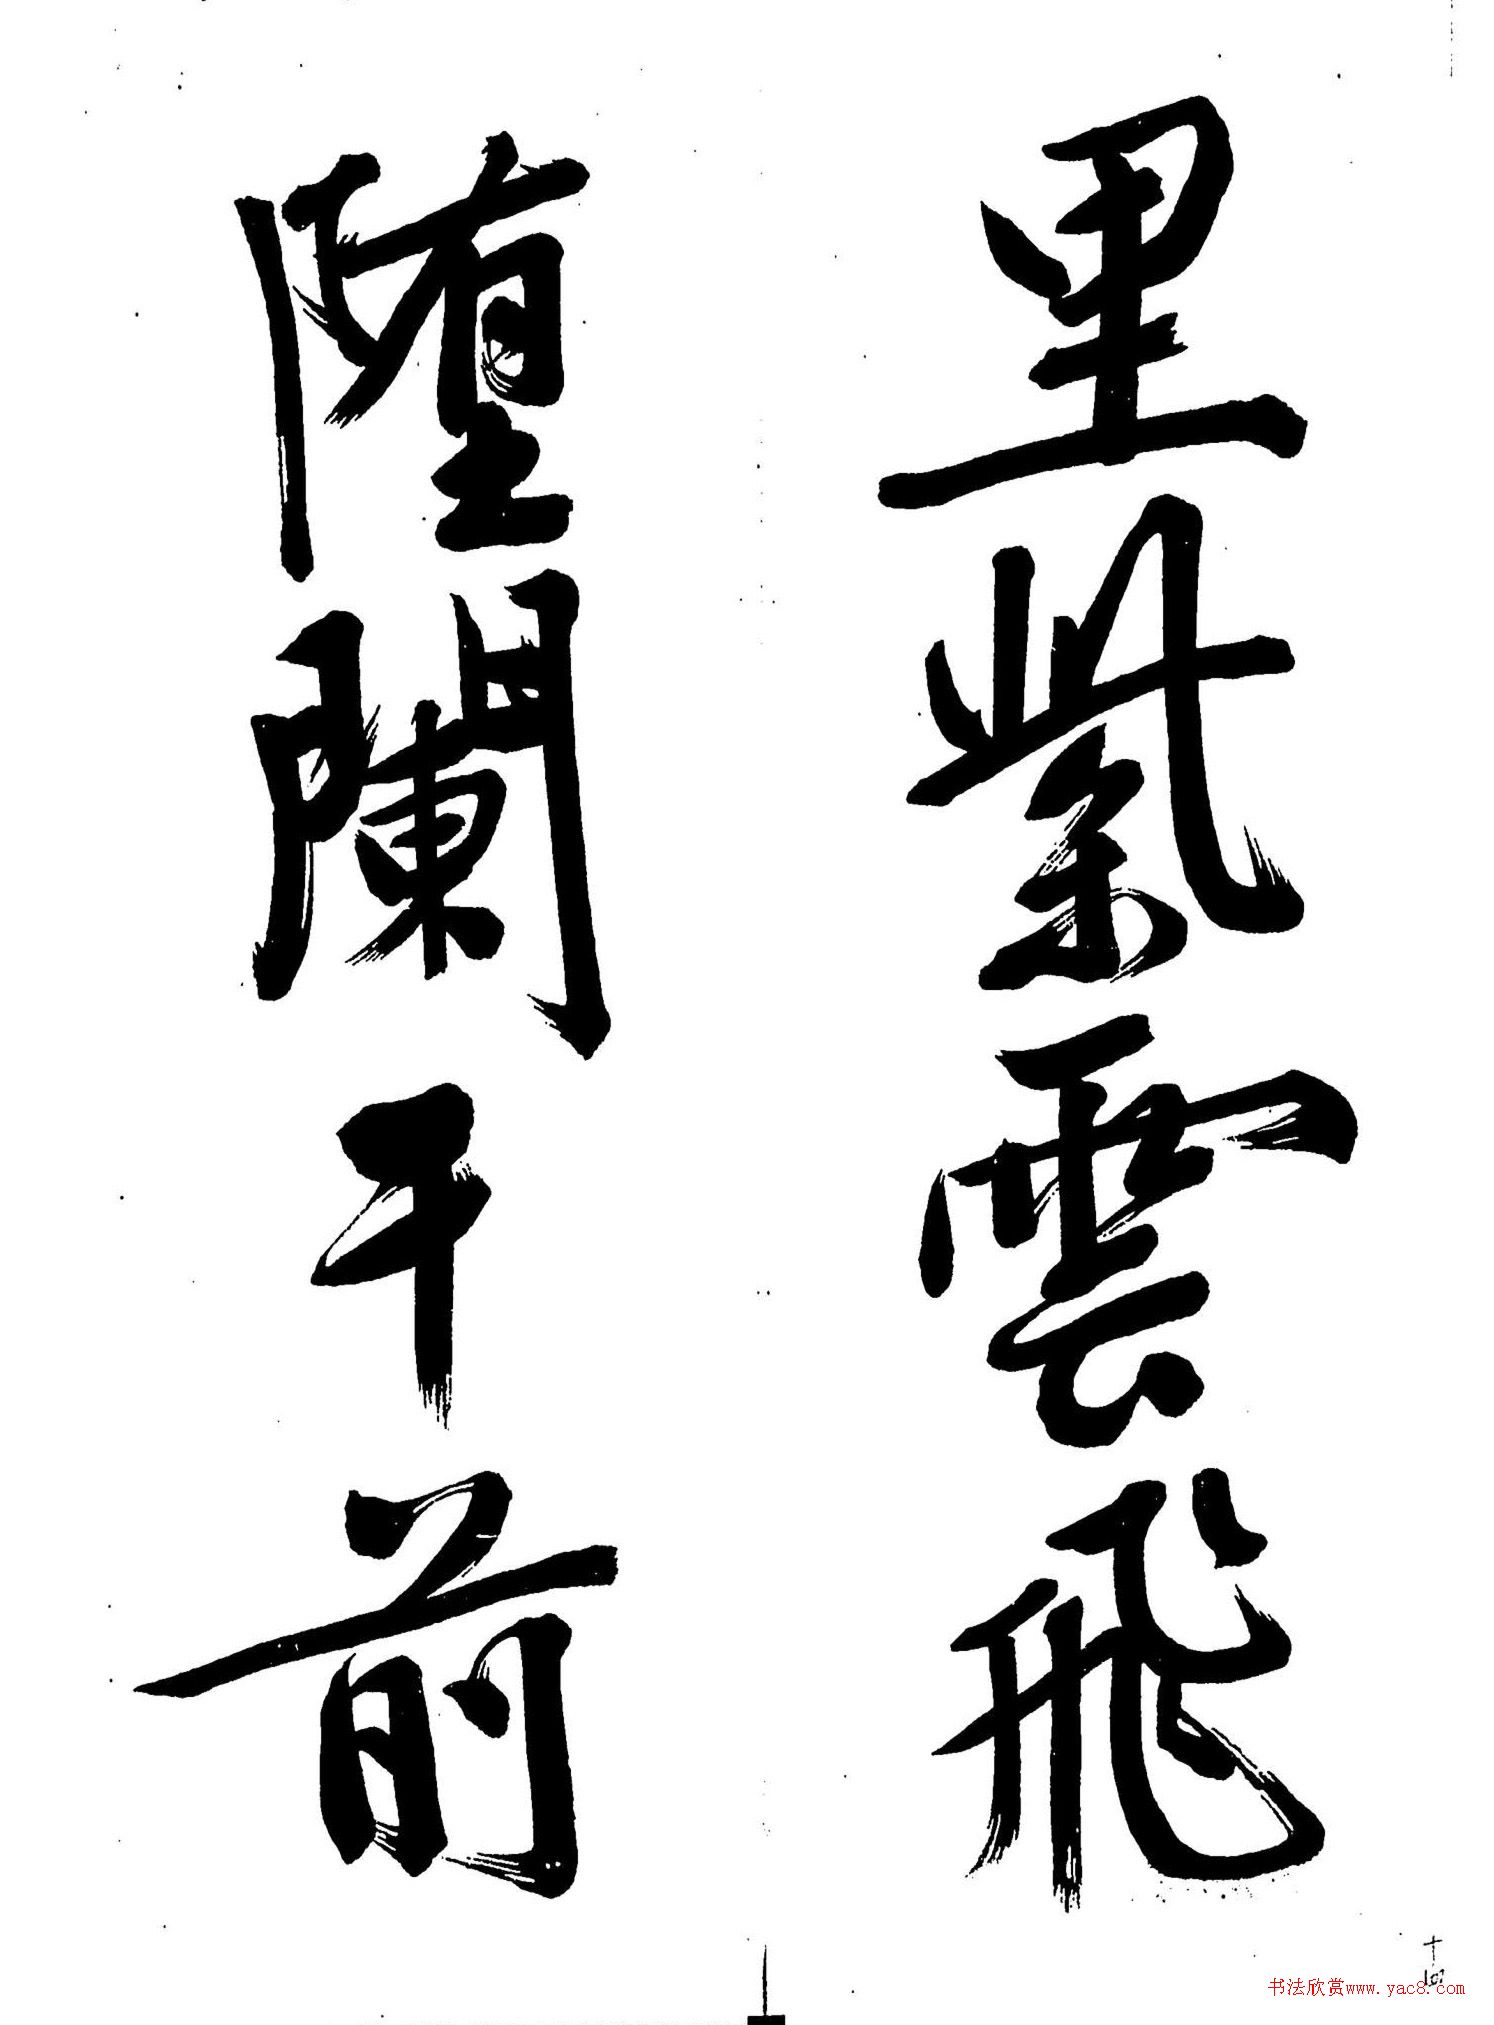 里紫雲飛
堕闌干前
十四
书法欣赏www.yac8.com